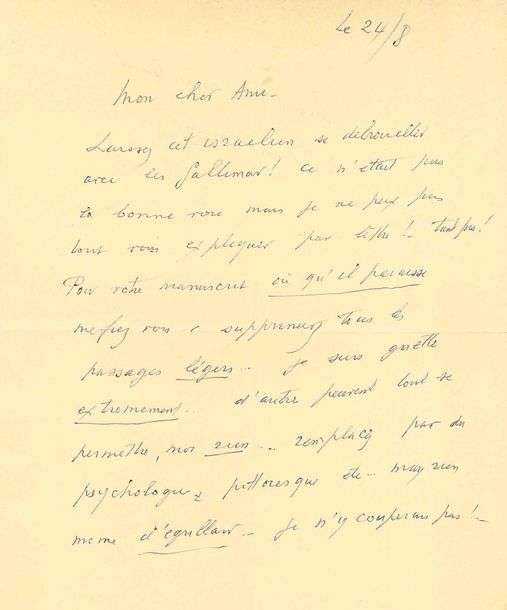 le 24/8
Mon cher Ami -
Laissez cet israelien se debrouiller
avec les Gallimard! ce n'était pas
la bonne voie mais je ne peux pas
tout vous expliquer par lettre! - tant pis!
Pour votre manuscrit où qu'il paraisse
mefiez vous : supprimez tous les
passages légers... je suis guetté
extremement... d'autre peuvent tout se
permettre, moi rien... remplacez par du
psychologue, pittoresque etc... mais rien
meme d'égrillard... je n'y couperais pas! -